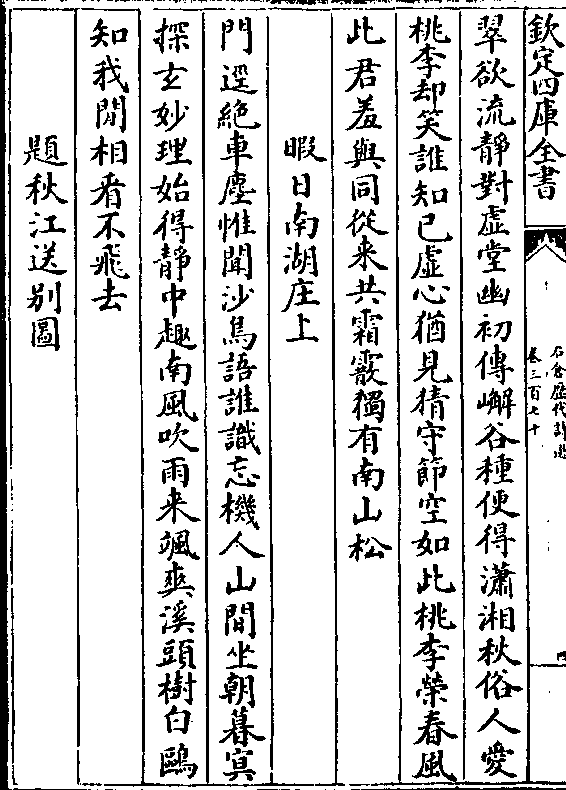 欽定四庫全書
石倉歴代詩選
卷三百七十
翠欲流靜對虛堂幽初傳嶰谷種便得瀟湘秋俗人愛
桃李却笑誰知已虛心猶見猜守節空如此桃李榮春風
此君羞與同從来共霜霰獨有南山松
暇日南湖庄上
門逕絶車塵惟聞沙鳥語誰識忘機人山間坐朝暮冥
探𤣥妙理始得靜中趣南風吹雨来颯爽溪頭樹白鷗
知我閒相看不飛去
題秋江送別圖